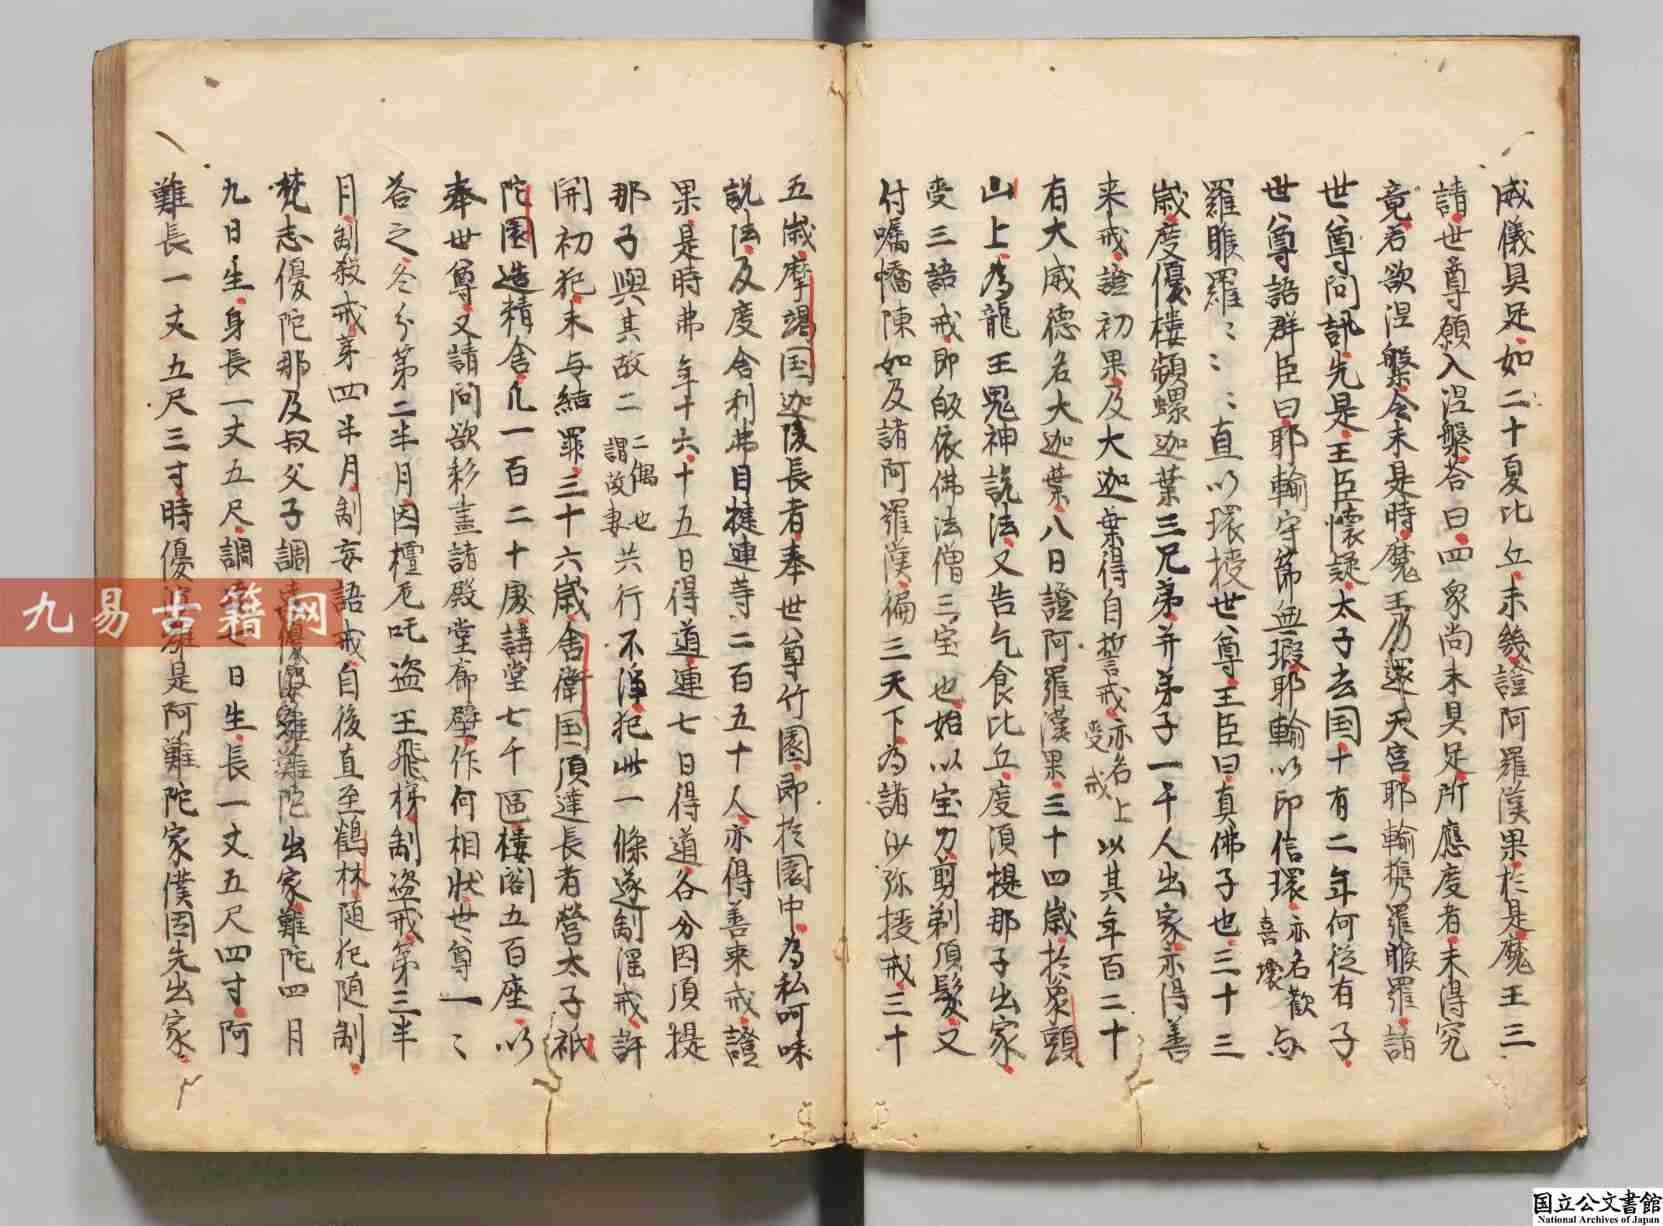 威儀具足如二十夏比丘未幾證阿羅漢果於是魔王三
請世尊願入涅槃荅曰四衆尚未具足所應度者未得究
竟若欲涅槃今未是時魔王乃還天宮耶輸携羅睺羅請
世尊問訊先是王臣懷疑太子去国十有二年何從有子
世尊語群臣曰耶輸守節無瑕耶輸以印信環亦名歡喜環与
羅睺羅〻〻〻直以環授世尊王臣曰真佛子也三十三
歳度優楼頻螺迦葉三兄弟并弟子一千人出家亦得善
来戒證初果及大迦葉得自誓戒亦名上受戒以其年百二十
有大威德名大迦葉八日證阿羅漢果三十四歳於象頭
山上為龍王鬼神說法又告乞食比丘度須提那子出家
受三語戒即皈依佛法僧三宝也始以宝刀剪剃須髮又
付囑憍陳如及諸阿羅漢徧三天下為諸沙弥授戒三十
五歳摩竭国迦陵長者奉世尊竹園即於園中為私呵昧
說法及度舎利弗目揵連等二百五十人亦得善来戒證
果是時弗年十六十五日得道連七日得道各分因須提
那子與其故二二偶也謂故妻共行不淨犯此一條遂制婬戒許
開初犯未与結罪三十六歳舎衛国須達長者營太子祇
陀園造精舎凡一百二十處講堂七千區楼閣五百座以
奉世尊又請問欲彩畫諸殿堂廊壁作何相狀世尊一〻
荅之冬分第二半月因檀尼吒盗王飛梯制盗戒第三半
月制殺戒芽四半月制妄語戒自後直至鶴林随犯随制
梵志優陀那及叔父子調達優波難陀出家難陀四月
九日生身長一丈五尺調達七日生長一丈五尺四寸阿
難長一丈五尺三寸時優波離是阿難陀家僕因先出家
九易古籍网
国立公文書館
National Archives of Japan